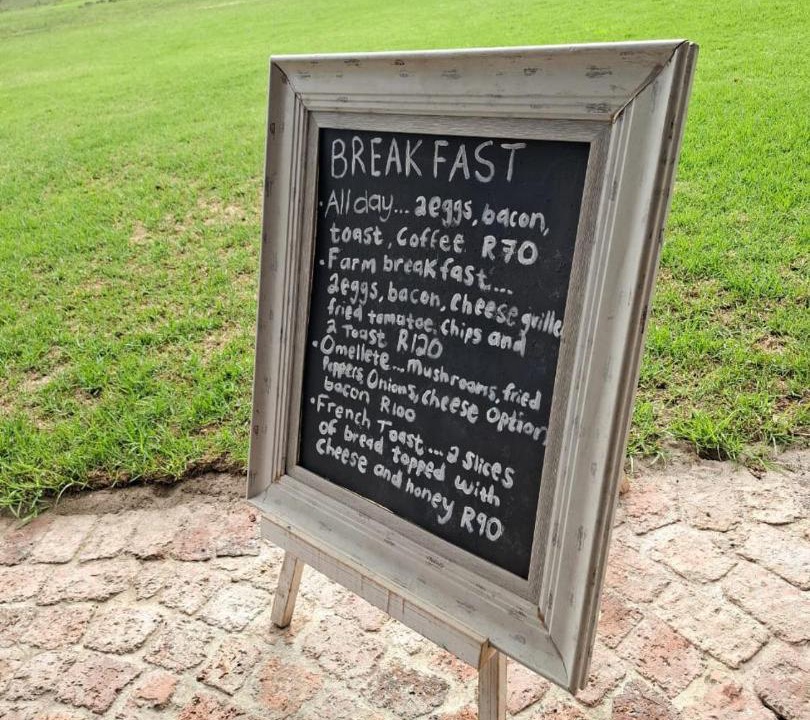 BREAKFAST
• All day... 2eggs, bacon,
toast, Coffee R70
• Farm breakfast...
2eggs, bacon, Cheese grille
fried tomatoe, chips and
2 Toast R120
• Omellete... Mushrooms, fried
Peppers, Onions, Cheese Option
bacon R100
• French Toast... 2 slices
of bread topped with
Cheese and honey R90